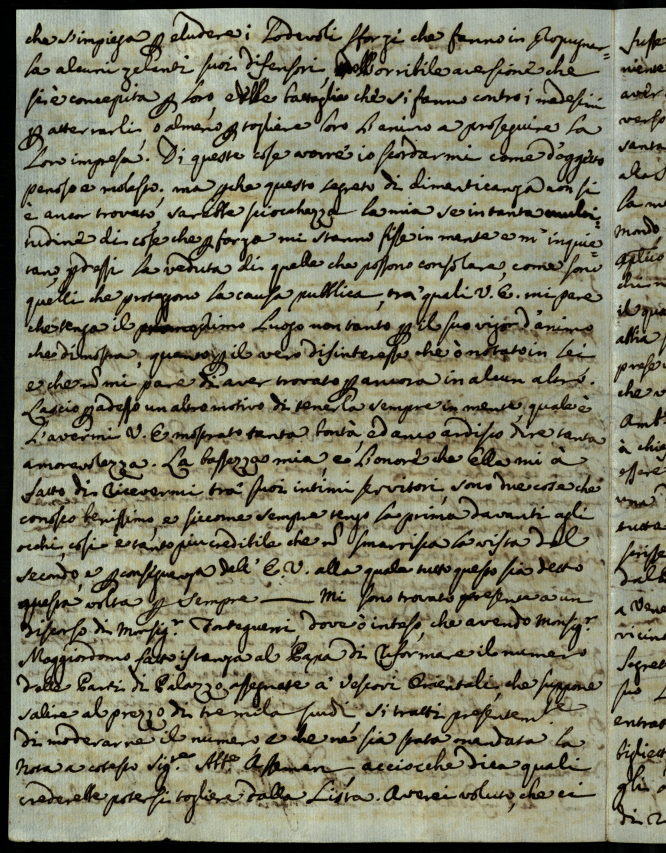 che s'impiega p eludere i lodevoli sforzi che fanno in propugnar=
la alcuni zelanti suoi difensori dall'orribile acensione che
si è concepita p loro, e dalle battaglie che si fanno contro i medesimi
p atterrarli, o almeno p togliere loro l'animo a proseguire la
loro impresa. Di queste cose vorrei io scordarmi come d'oggetto
penoso e molesto; ma pche questo segreto di dimenticanza non si
è ancor trovato, sarebbe sciocchezza la mia se in tanta molti=
tudine di cose che p forza mi stanno fisse in mente e m'inquie
tano pdessi la veduta di quelle che possono consolare, come sono
quelli che proteggono la causa pubblica, tra' quali V. E. mi pare
che tenga il primo luogo non tanto p il suo vigor d'animo
che dimostra, quanto p il vero disinteresse che ò notato in Lei
e che ñ mi pare di aver trovato p ancora in alcun altro.
Lascio p adesso un altro motivo di tenerla sempre in mente qual è
l'avermi V. E. mostrato tanta bontà, ed anco ardisco dire tanta
amorevolezza. La bassezza mia, e l'onore che Ella mi à
fatto di ricevermi tra' suoi intimi servitori sono due cose che
conosco benissimo e siccome sempre tengo la prima davanti agli
occhi, così è tanto più credibile che ñ smarrisca la vista del
secondo, e p conseguenza dell' E. V. alla quale tutto questo sia detto
questa volta p sempre — Mi sono trovato presente a un
discorso di Monsig.r Bottegueni, dove ò inteso, che avendo Monsig.r
Maggiordomo fatto istanza al Papa di riformare il numero
delle Parti di Palazzo assegnate a' Vescovi Orientali, che suppone
salire al prezzo di tremila scudi si tratti presentem.te
di moderarne il numero e che ne sia stata mandata la
nota a cotesto Sig.re Ab.te Assemani acciocchè dica quali
crederebbe potersi togliere dalla Lista. Averei voluto, che ci